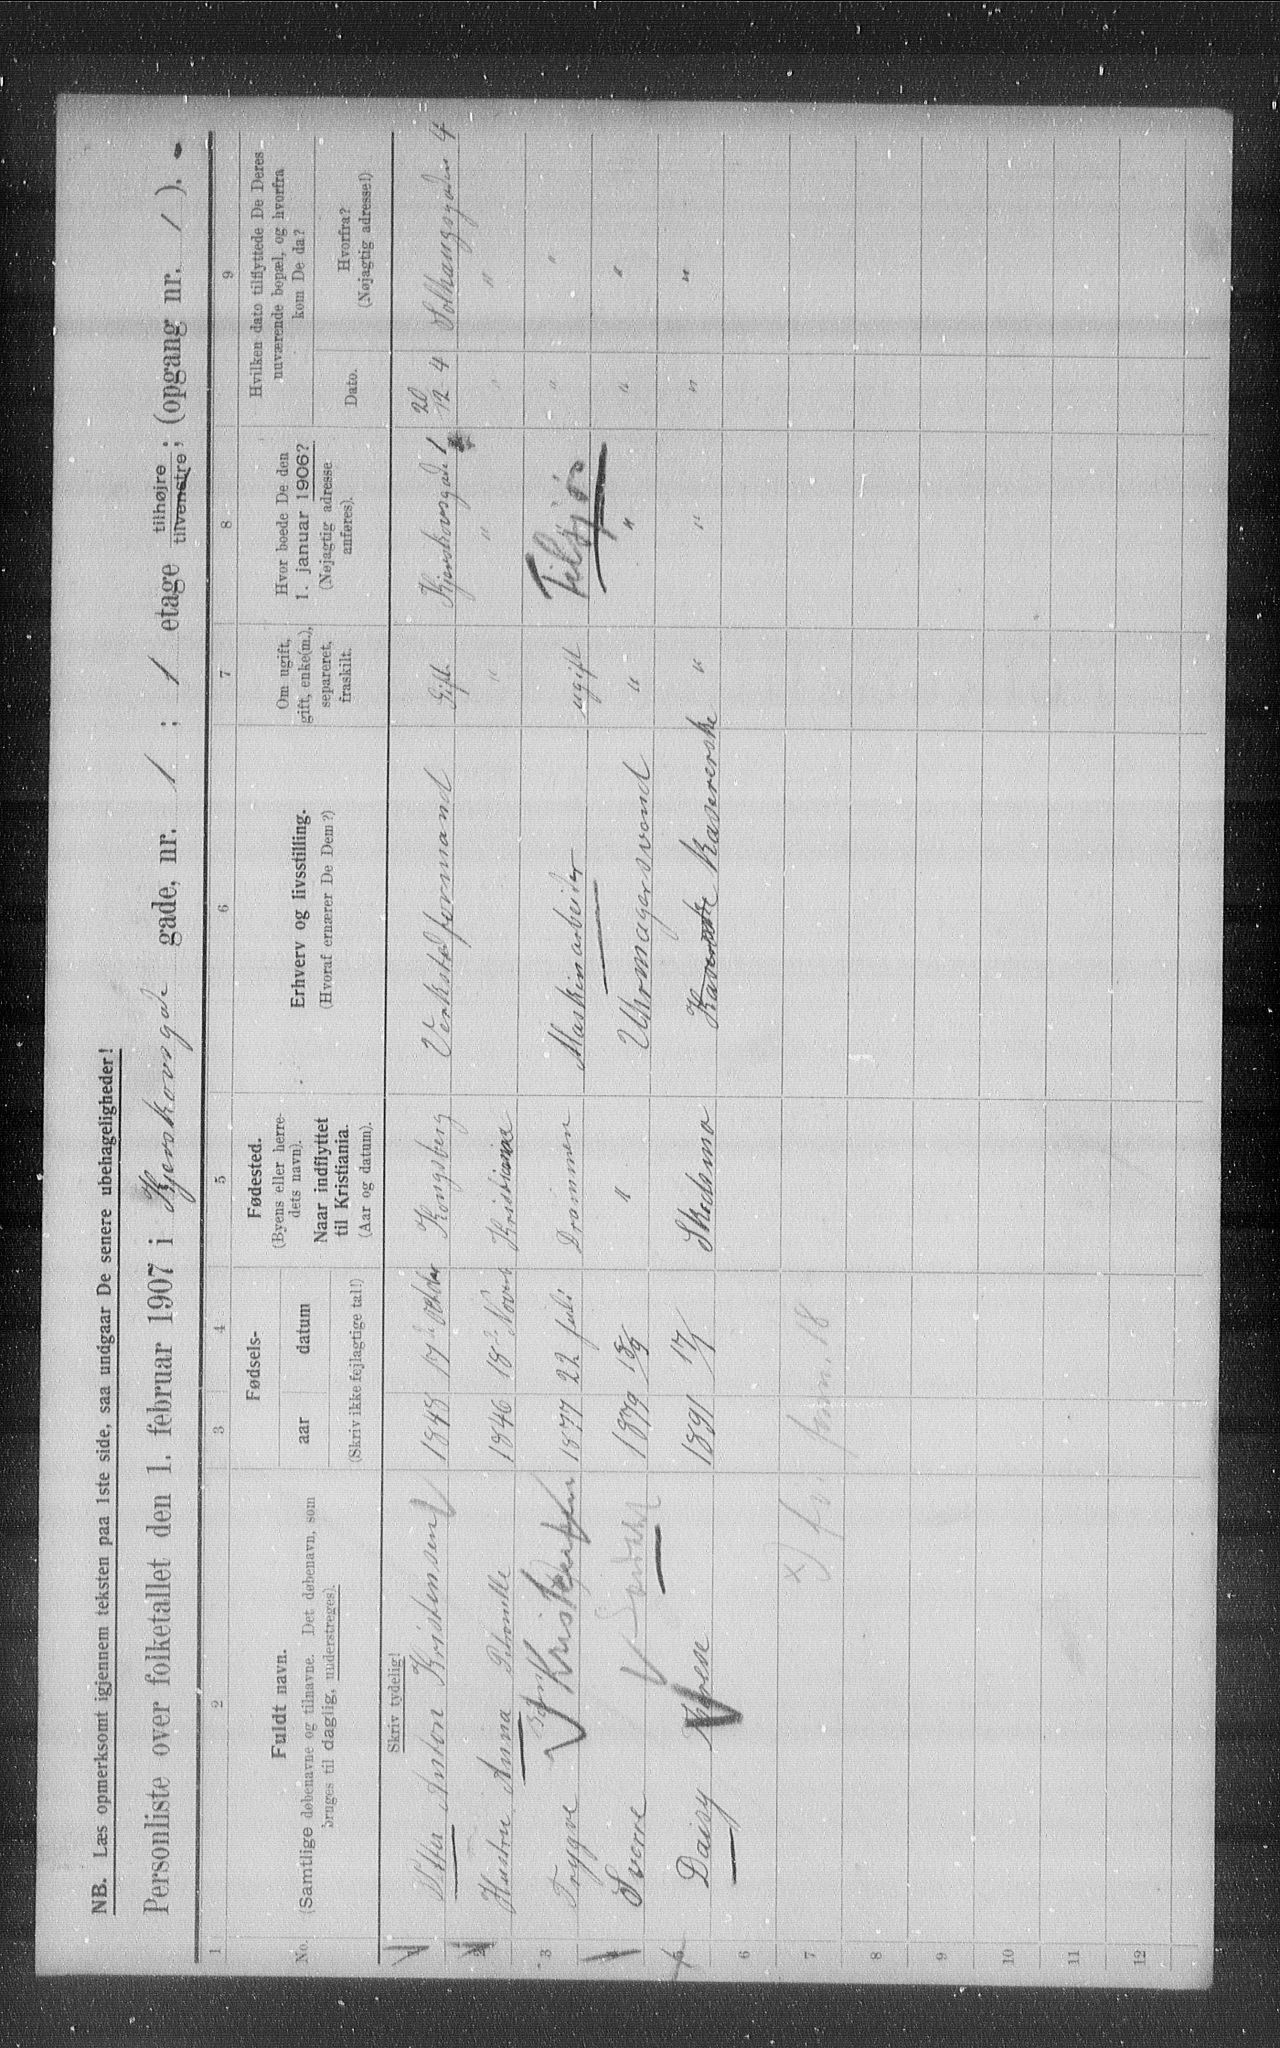 NB. Læs opmerksomt igjennem teksten paa 1ste side, saa undgaar De senere ubehageligheder!
Personliste over folketallet den 1. februar 1907 i Kjerskovsgade gade, nr. 1 ; 1 etage tilhøjre tilvenstre ; (opgang nr. 1 ).
1 2 3 4 5 6 7 8 9
No.
Fuldt navn.
(Samtlige døbenavne og tilnavne. Det døbenavn, som
bruges til daglig, understreges).
Fødsels-
aar datum
(Skriv ikke fejlagtige tal!)
Fødested.
(Byens eller herre-
dets navn).
Naar indflyttet
til Kristiania.
(Aar og datum).
Erhverv og livsstilling.
(Hvoraf ernærer De Dem?)
Om ugift,
gift, enke(m.),
separeret,
fraskilt.
Hvor boede De den
1. januar 1906?
(Nøjagtig adresse
anføres).
Hvilken dato tilflyttede De Deres
nuværende bopæl, og hvorfra
kom De da?
Dato.
Hvorfra?
(Nøjagtig adresse!)
Skriv tydelig!
1 Peter Anton Kristensen 1848 17de Oktober Kongsberg Verkstedformand Gift Kjerskovsgade 1 20/12 4 Solhaugsgaden 4
2 Hustru Anna Petronelle 1846 18de Novemb Kristiania " " " "
3 Trygve Kristensen 1877 22 juli Drammen Maskinarbeider ugift Tilføjes " "
4 Sverre 1879 " Uhrmagersvend " " " "
5 Daisy Therese 1891 17/1 Skedsmo Kasererske " " " "
6
7
8
9
10
11
12